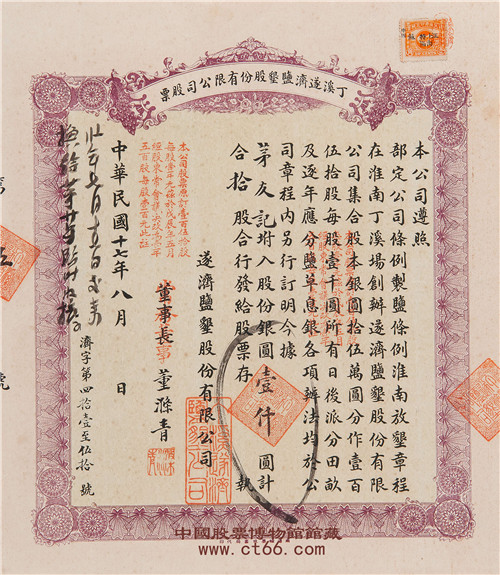 丁溪遂濟鹽墾股份有限公司股票
本公司遵照
部定公司條例製鹽條例淮南放墾章程
在淮南丁溪場創辦遂濟鹽墾股份有限
公司集合股本銀圓拾伍萬圓分作壹百
伍拾股每股壹千圓所有日後派分田畝
及逐年應分鹽草息銀各項辦法均於公
司章程內另行訂明今據
茀友記附入股份銀圓壹仟圓計
合拾股合行發給股票存執
遂濟鹽墾股份有限公司
董事長
董滌青
本公司股票原計壹百伍拾股
每股壹千元
五百股每股壹百元此註
中華民國十七年八月 日
濟字第四拾壹至伍拾號
中國股票博物館館藏
www.ct66.com